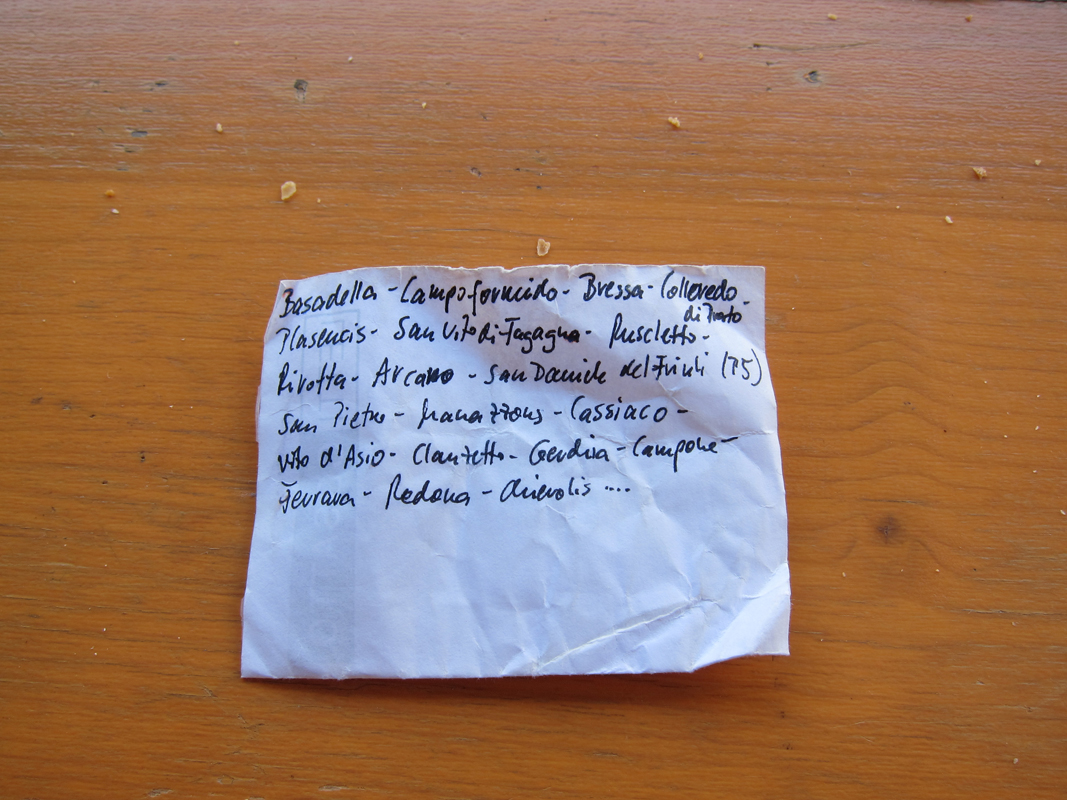 Basadella - Campoformido - Bressa - Colloredo -
di Prato
Plasencis - San Vito di Fagagna - Ruscletto -
Rivotta - Arcano - San Daniele del Friuli (P5)
San Pietro - Manazzons - Cassiaco -
Vito d'Asio - Clauzetto - Gerdisa - Campone -
Tevrava - Redona - Chievolis ....